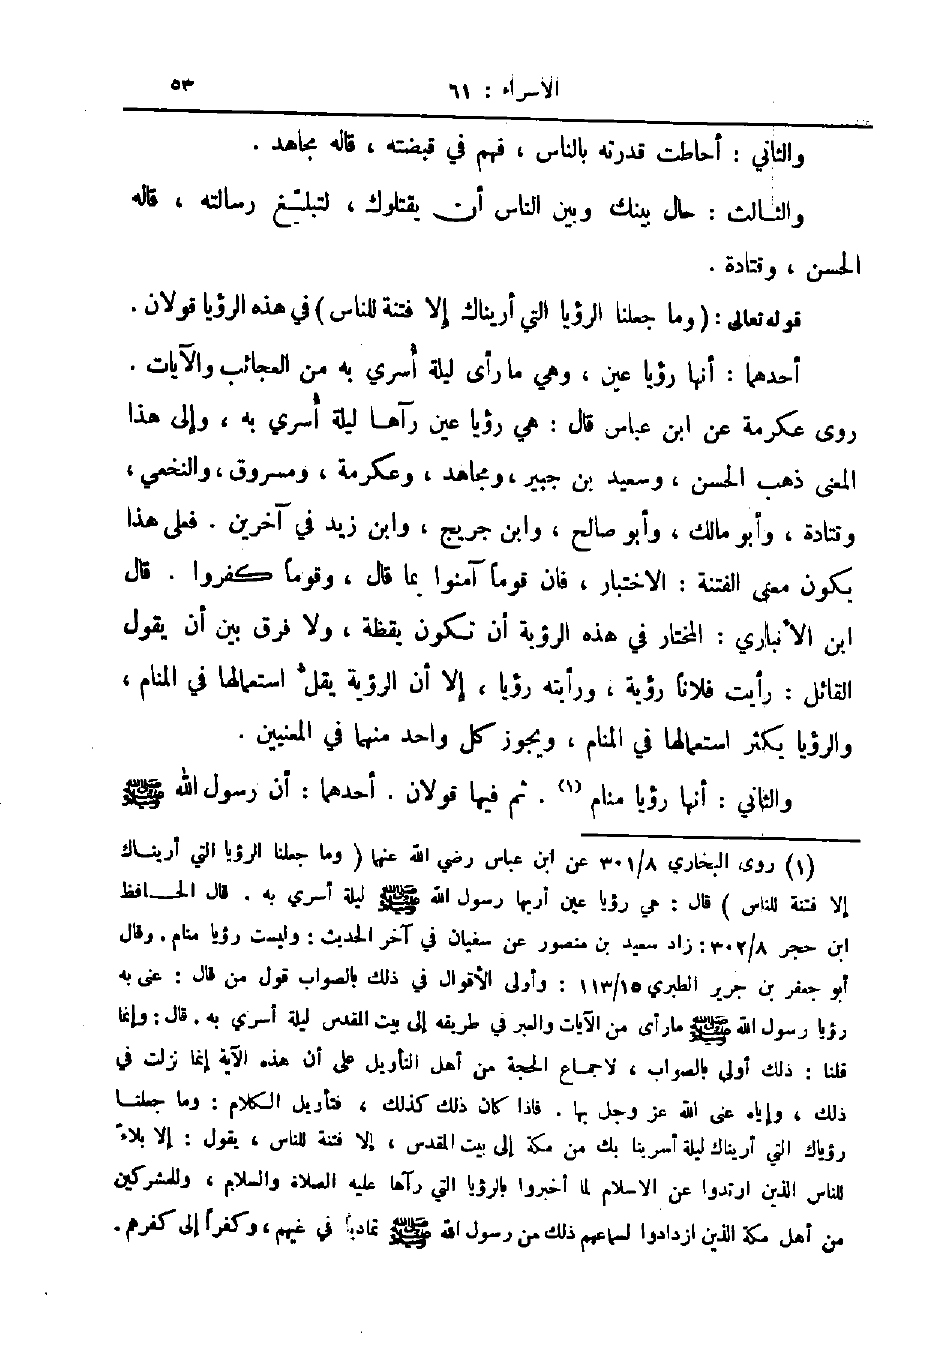 الأسراء : ٦١ ٥٣
والثاني : أحاطت قدرته بالناس ، فهم في قبضته ، قاله مجاهد .
والثالث : حال بينك وبين الناس أن يقتلوك ، لتبليغ رسالته ، قاله
الحسن ، وقتادة .
قوله تعالى : ( وما جعلنا الرؤيا التي أريناك إلا فتنة للناس ) في هذه الرؤيا قولان .
أحدهما : أنها رؤيا عين ، وهي ما رأى ليلة أُسري به من العجائب والآيات .
روى عكرمة عن ابن عباس قال : هي رؤيا عين رآها ليلة أُسري به ، وإلى هذا
المعنى ذهب الحسن ، وسعيد بن جبير ، ومجاهد ، وعكرمة ، ومسروق ، والنخعي ،
وقتادة ، وأبو مالك ، وأبو صالح ، وابن جريج ، وابن زيد في آخرين . فعلى هذا
يكون معنى الفتنة : الاختبار ، فان قوماً آمنوا بما قال ، وقوماً كفروا . قال
ابن الأنباري : المختار في هذه الرؤية أن تكون يقظة ، ولا فرق بين أن يقول
القائل : رأيت فلاناً رؤية ، ورأيته رؤيا ، إلا أن الرؤية يقلُّ استعمالها في المنام ،
والرؤيا يكثر استعمالها في المنام ، ويجوز كل واحد منهما في المعنيين .
والثاني : أنها رؤيا منام (١) . ثم فيها قولان . أحدهما : أن رسول الله ﷺ
(١) روى البخاري ٣٠١/٨ عن ابن عباس رضي الله عنهما ( وما جعلنا الرؤيا التي أريناك
إلا فتنة للناس ) قال : هي رؤيا عين أريها رسول الله ﷺ ليلة أسري به . قال الحافظ
ابن حجر ٣٠٢/٨ : زاد سعيد بن منصور عن سفيان في آخر الحديث : وليست رؤيا منام . وقال
أبو جعفر بن جرير الطبري ١١٣/١٥ : وأولى الأقوال في ذلك بالصواب قول من قال : عنى به
رؤيا رسول الله ﷺ ما رأى من الآيات والعبر في طريقه إلى بيت المقدس ليلة أسري به . قال : وإنما
قلنا : ذلك أولى بالصواب ، لاجماع الحجة من أهل التأويل على أن هذه الآية إنما نزلت في
ذلك ، وإياه عنى الله عز وجل بها . فاذا كان ذلك كذلك ، فتأويل الكلام : وما جعلنا
رؤياك التي أريناك ليلة أسرينا بك من مكة إلى بيت المقدس ، إلا فتنة للناس ، يقول : إلا بلاءً
للناس الذين ارتدوا عن الاسلام لما أخبروا بالرؤيا التي رآها عليه الصلاة والسلام ، وللمشركين
من أهل مكة الذين ازدادوا لسماعهم ذلك من رسول الله ﷺ تمادياً في غيهم ، وكفراً إلى كفرهم .